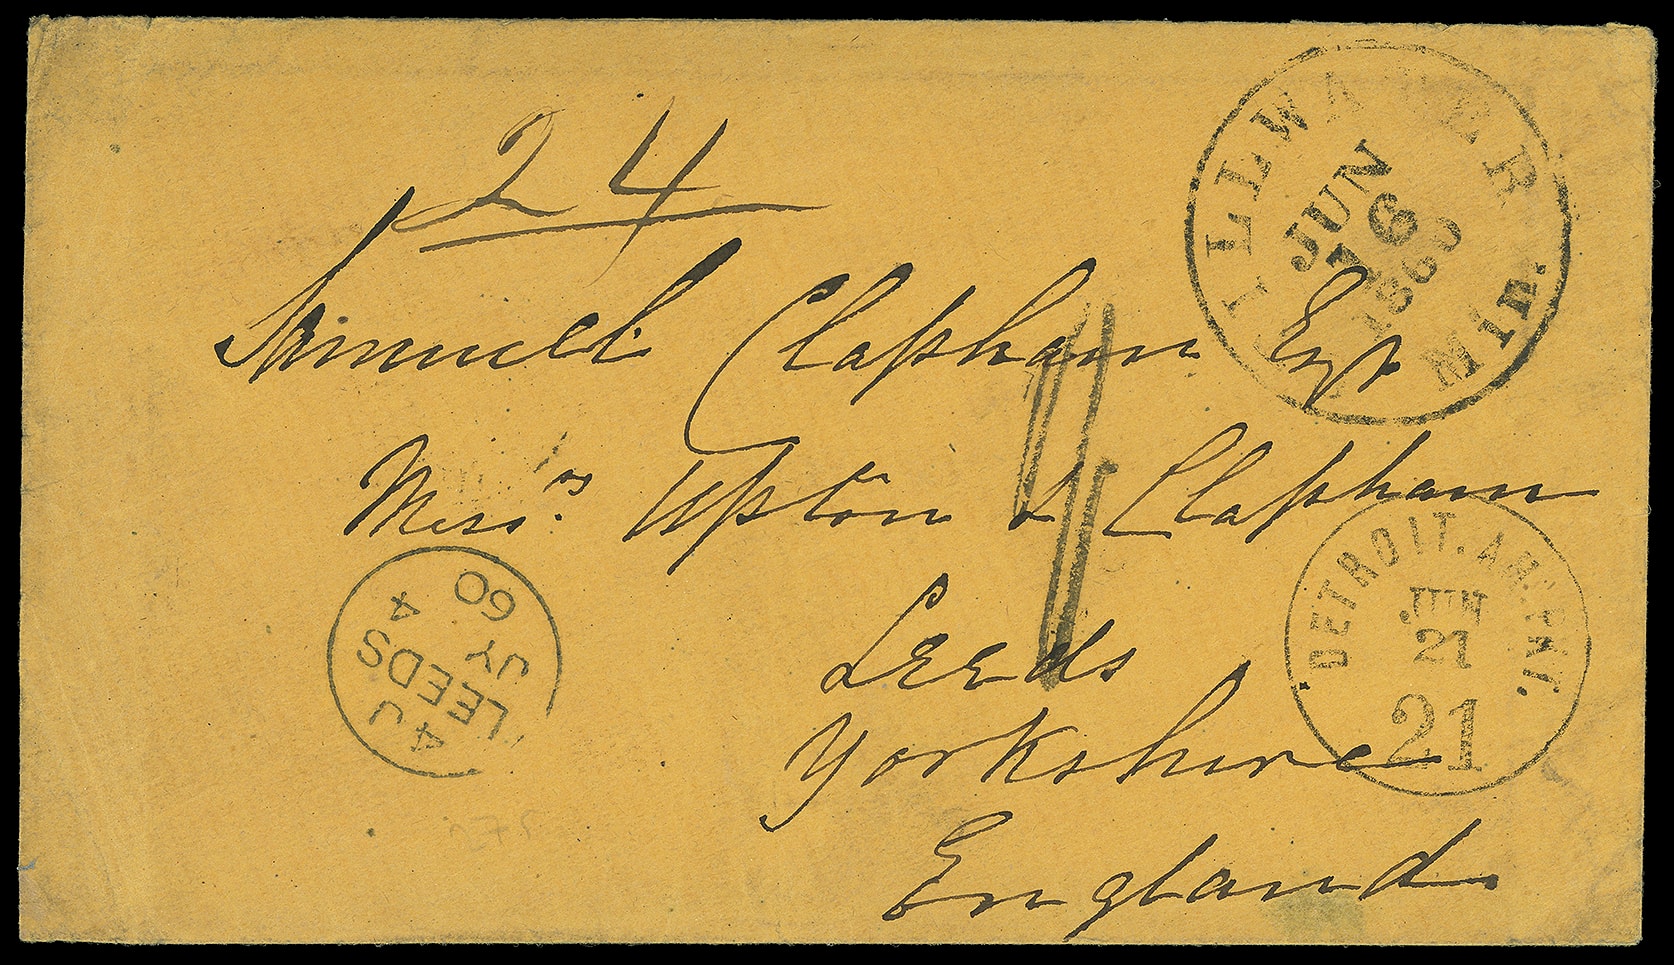 24
STILLWATER Min.
JUN
16
1860
Samuel Clapham Esqr
Messrs Upton & Clapham
Leeds
Yorkshire
England
DETROIT. AM. PKT.
JUN
21
21
LEEDS
4 J
JY 4
60